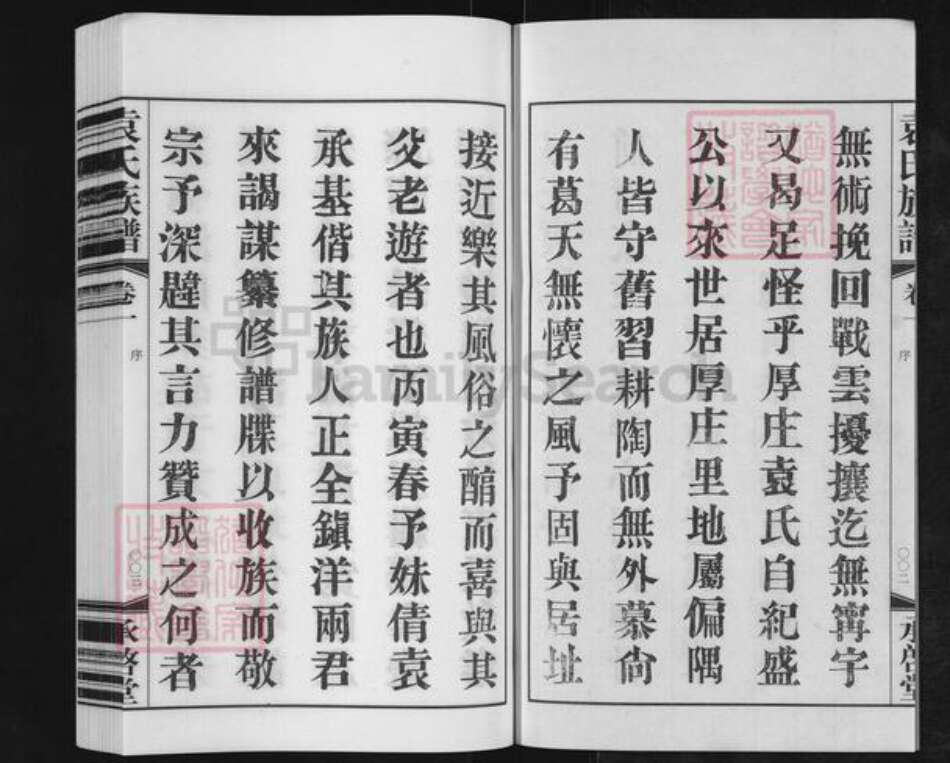 袁氏族譜
卷一
序
〇〇二
承啓堂
無術挽回戰雲擾攘迄無寗宇
又曷足怪乎厚庄袁氏自紀盛
公以來世居厚庄里地屬偏隅
人皆守舊習耕陶而無外慕尙
有葛天無懷之風予固與居址
接近樂其風俗之醕而喜與其
父老遊者也丙寅春予妹倩袁
承基偕其族人正全鎭洋兩君
來謁謀纂修譜牒以收族而敬
宗予深韙其言力贊成之何者
袁氏族譜
卷一
序
〇〇三
承啓堂
FamilySearch